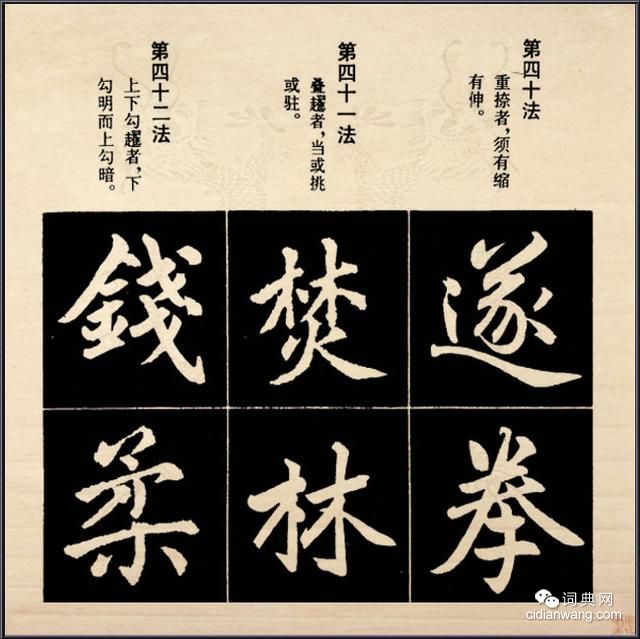 第四十法
重捺者，须有缩
有伸。
第四十一法
叠趯者，当或挑
或驻。
第四十二法
上下勾趯者，下
勾明而上勾暗。
遂
拳
焚
林
錢
柔
词典网
cidianwang.com